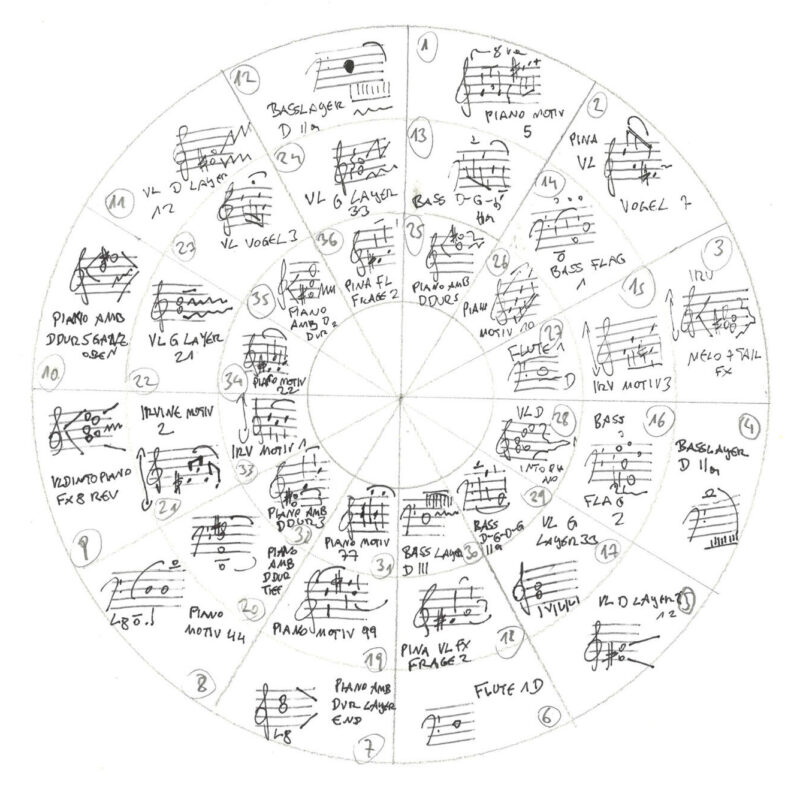 1
8va
PIANO MOTIV
5
2
PINA
VL
VOGEL 7
3
IRV
MELO 7 TAIL
FX
4
BASSLAYER
D
5
VL D LAYER
12
6
FLUTE 1 D
7
PIANO AMB
DUR LAYER
END
8
PIANO
MOTIV 44
9
VLD INTO PIANO
FX 8 REV
10
PIANO AMB
OBEN
11
VL D LAYER
12
12
BASSLAYER
D
13
BASS D-G-
14
BASS FLAG
1
15
IRV MOTIV 3
16
BASS
FLAG
2
17
VL G
LAYER 33
18
PINA VL FX
FRAGE 2
19
PIANO MOTIV 99
20
PIANO
AMB
DDUR
TIEF
21
IRVINE MOTIV
2
22
VL G LAYER
21
23
VL VOGEL 3
24
VL G LAYER
33
25
PIANO AMB
DDUR 5
26
PIANO
MOTIV 10
27
FLUTE 1
D
28
VL D
INTO PIANO
29
BASS
D-G-D-G
30
BASS LAYER
D III
31
PIANO MOTIV
77
32
PIANO AMB
DDUR 3
33
IRV MOTIV 1
34
PIANO MOTIV
22
35
PIANO
AMB D
DUR 2
36
PINA FL
FRAGE 2